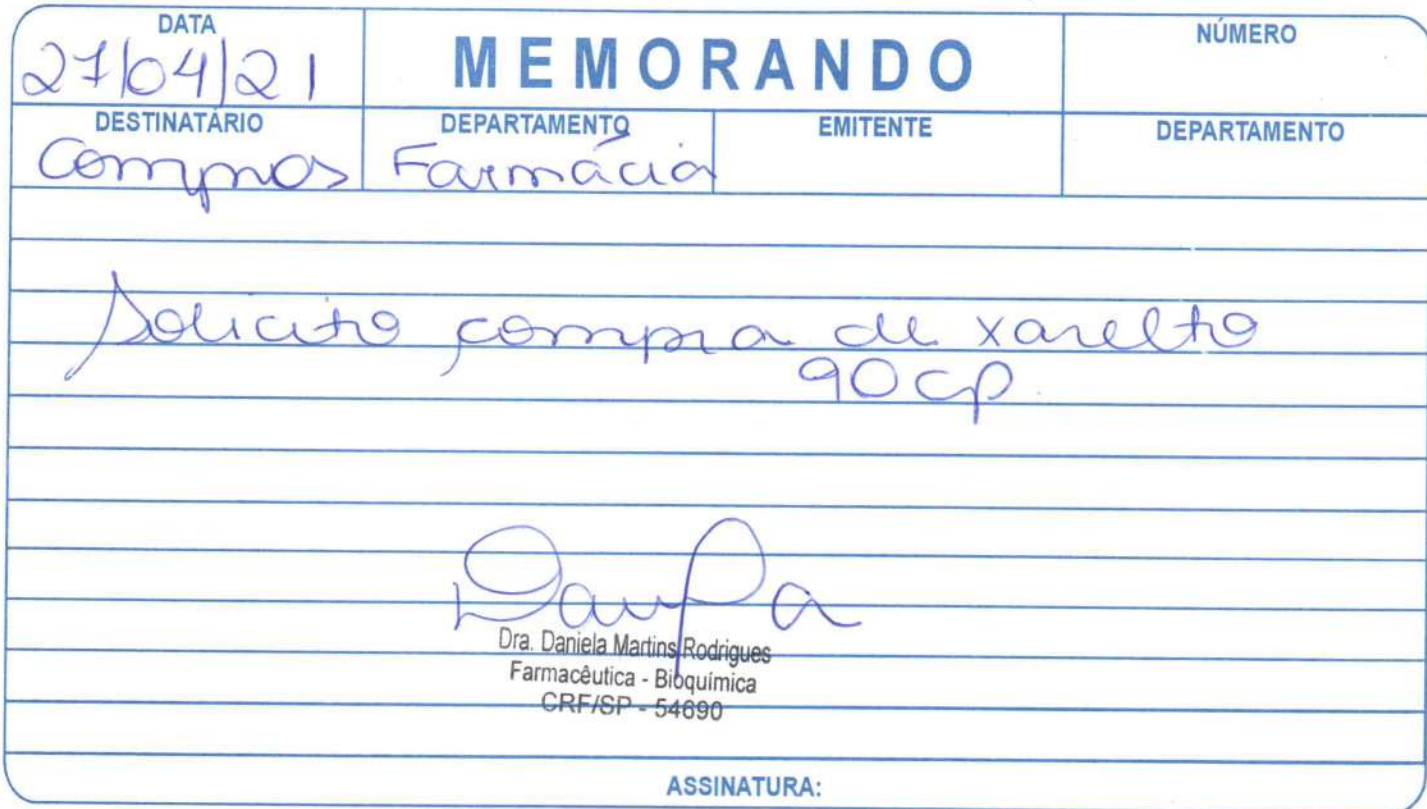 DATA
27/04/21
MEMORANDO
NÚMERO
DESTINATÁRIO
Compras
DEPARTAMENTO
Farmácia
EMITENTE
DEPARTAMENTO
Solicito compra de xarelto
90 cp.
Dra. Daniela Martins Rodrigues
Farmacêutica - Bioquímica
CRF/SP - 54690
ASSINATURA: